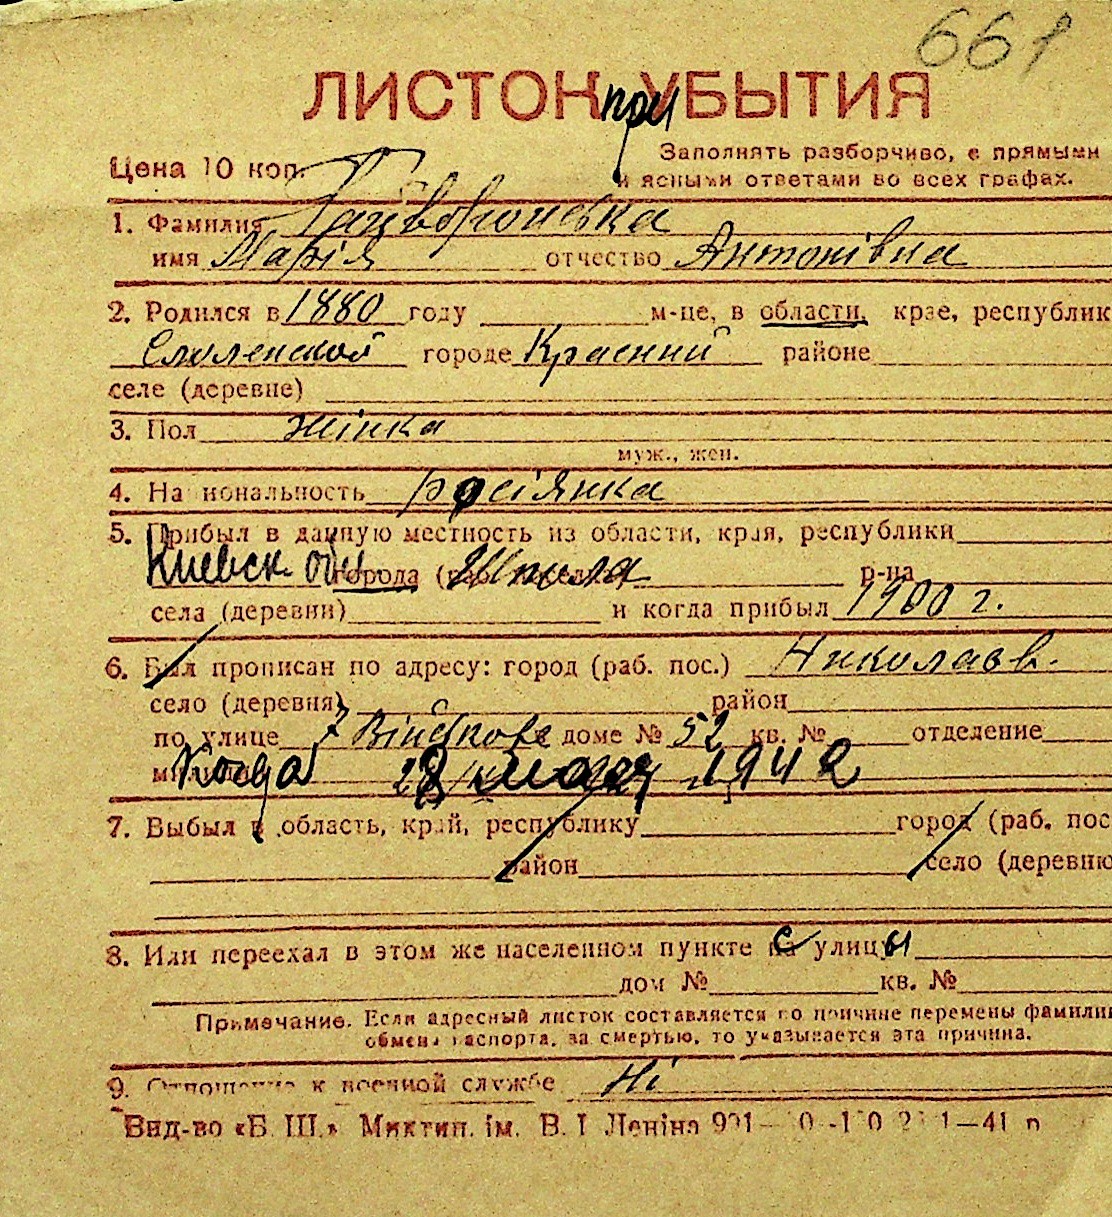 661
ЛИСТОК при УБЫТИЯ
Цена 10 коп.
Заполнять разборчиво, с прямыми
и ясными ответами во всех графах.
1. Фамилия Гайворонська
имя Марія отчество Антонівна
2. Родился в 1880 году м-це, в области, крае, республик
Смоленской городе Красний районе
селе (деревне)
3. Пол жінка
муж., жен.
4. Национальность росіянка
5. Прибыл в данную местность из области, края, республики
Киевск. обл. города Шпола р-на
села (деревни) и когда прибыл 1900 г.
6. Был прописан по адресу: город (раб. пос.) Николаев.
село (деревня) район
по улице 7 Військова доме № 52 кв. № отделение
милиции Когда 28 мая 1942
7. Выбыл в область, край, республику город (раб. пос
район село (деревню
8. Или переехал в этом же населенном пункте с улицы
дом № кв. №
Примечание. Если адресный листок составляется по причине перемены фамилии
обмена паспорта, за смертью, то указывается эта причина.
9. Отношение к военной службе Ні
Вид-во «Б. Ш.» Миктип. ім. В. І Леніна